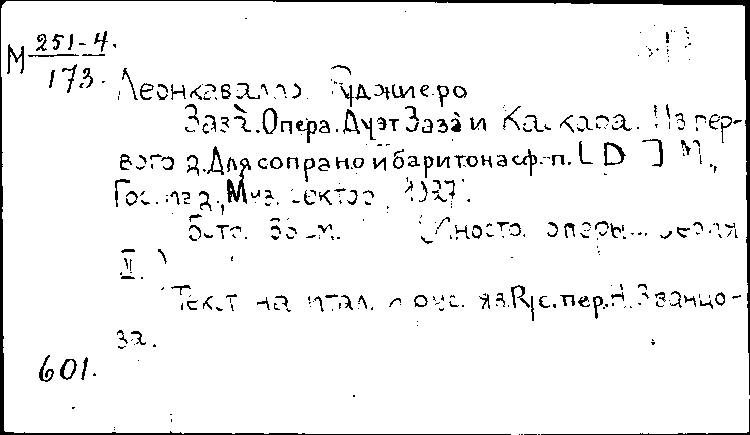 М 251-4.
173.
Леонкавалло Руджиеро
Заза. Опера. Дуэт Заза и Каскара. Из пер-
вого д. Для сопрано и баритона с ф.-п. [D] М.,
Гос. изд., Муз. сектор, 1927.
6 стр. 35 см. (Иностр. оперы. Серия
VI.)
Текст на итал. и рус. яз. Рус. пер. Н. Званцо-
ва.
601.